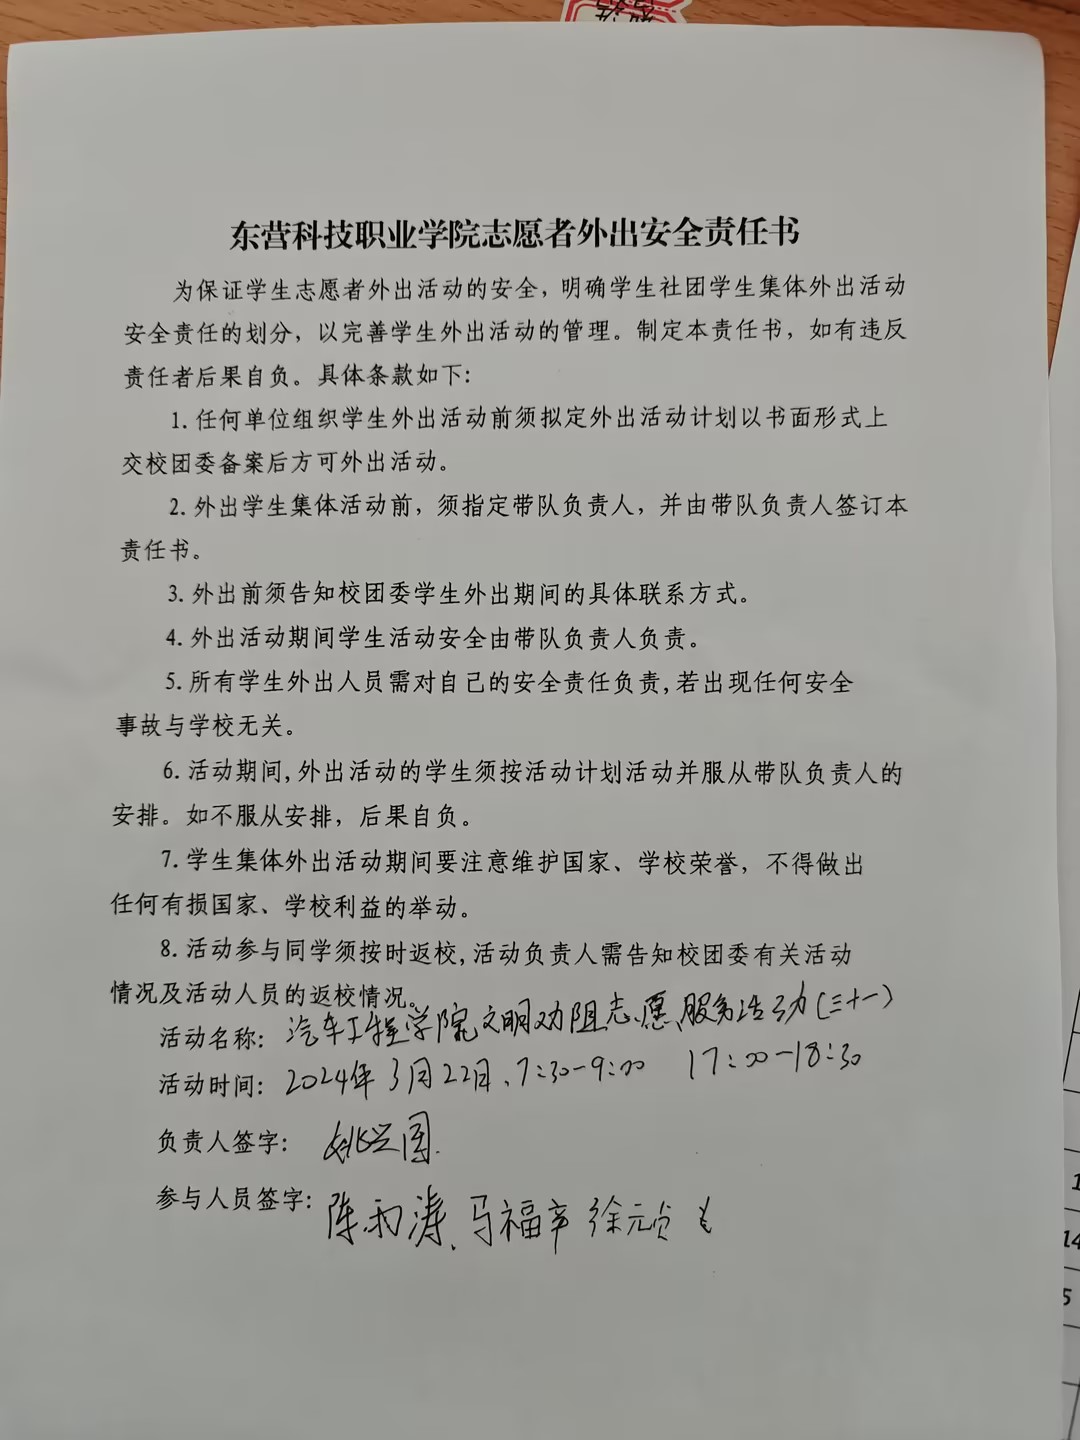 东营科技职业学院志愿者外出安全责任书
为保证学生志愿者外出活动的安全，明确学生社团学生集体外出活动
安全责任的划分，以完善学生外出活动的管理。制定本责任书，如有违反
责任者后果自负。具体条款如下：
1. 任何单位组织学生外出活动前须拟定外出活动计划以书面形式上
交校团委备案后方可外出活动。
2. 外出学生集体活动前，须指定带队负责人，并由带队负责人签订本
责任书。
3. 外出前须告知校团委学生外出期间的具体联系方式。
4. 外出活动期间学生活动安全由带队负责人负责。
5. 所有学生外出人员需对自己的安全责任负责,若出现任何安全
事故与学校无关。
6. 活动期间,外出活动的学生须按活动计划活动并服从带队负责人的
安排。如不服从安排，后果自负。
7. 学生集体外出活动期间要注意维护国家、学校荣誉，不得做出
任何有损国家、学校利益的举动。
8. 活动参与同学须按时返校,活动负责人需告知校团委有关活动
情况及活动人员的返校情况。
活动名称：汽车工程学院文明劝阻志愿服务活动(三十一)
活动时间：2024年3月22日、7:30-9:00 17:00-18:30
负责人签字：姚兴国
参与人员签字：陈雨涛、马福辛 徐元贞
14
5